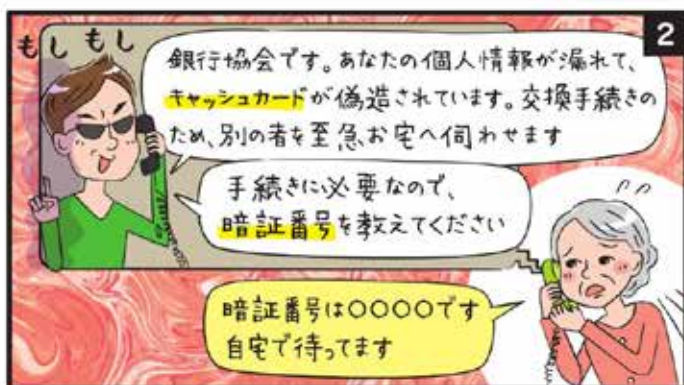 2
もしもし
銀行協会です。あなたの個人情報が漏れて、
キャッシュカードが偽造されています。交換手続きの
ため、別の者を至急お宅へ伺わせます
手続きに必要なので、
暗証番号を教えてください
暗証番号は〇〇〇〇です
自宅で待ってます